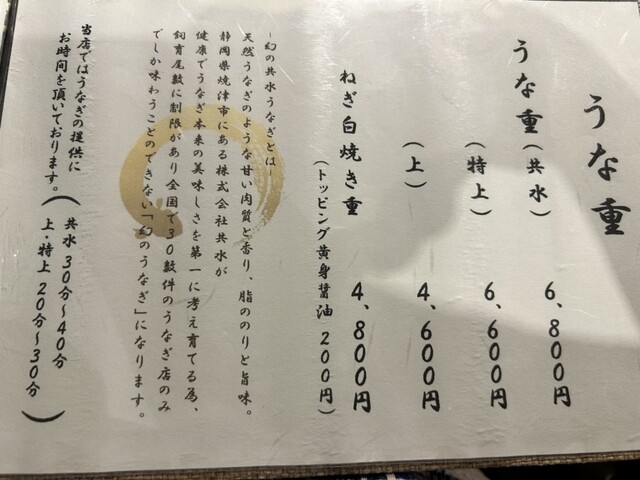 うな重
うな重(共水) 6、800円
(特上) 6、600円
(上) 4、600円
ねぎ白焼き重 4、800円
(トッピング黄身醤油 200円)
-幻の共水うなぎとは-
天然うなぎのような甘い肉質と香り、脂ののりと旨味。
静岡県焼津市にある株式会社共水が
健康でうなぎ本来の美味しさを第一に考え育てる為、
飼育尾数に制限があり全国で30数件のうなぎ店のみ
でしか味わうことのできない「幻のうなぎ」になります。
当店ではうなぎの提供に
お時間を頂いております。
(共水 30分~40分
上・特上 20分~30分)